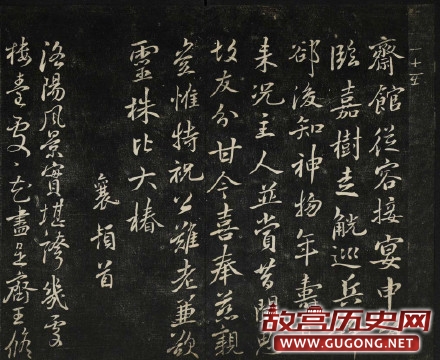 十五
齋館從容接宴申
臨嘉樹走觥巡兵
郤後知神物年壽
来況主人並賞昔聞
故友分甘今喜奉慈親
豈惟特祝公難老兼欲
靈株比大椿
襄頓首
洛陽風景實堪誇幾處
樓臺處〻花盡是齊王脩
故宫历史网